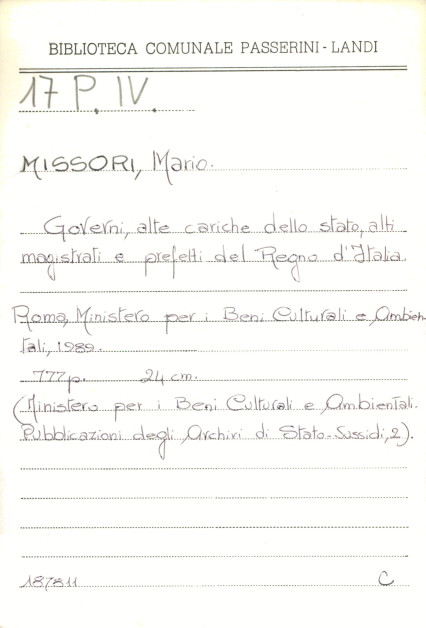 BIBLIOTECA COMUNALE PASSERINI-LANDI
17 P. IV.
MISSORI, Mario.
Governi, alte cariche dello stato, alti
magistrati e prefetti del Regno d'Italia.
Roma, Ministero per i Beni Culturali e Ambien-
tali, 1989.
777 p. 24 cm.
(Ministero per i Beni Culturali e Ambientali.
Pubblicazioni degli Archivi di Stato-Sussidi, 2).
187811 C